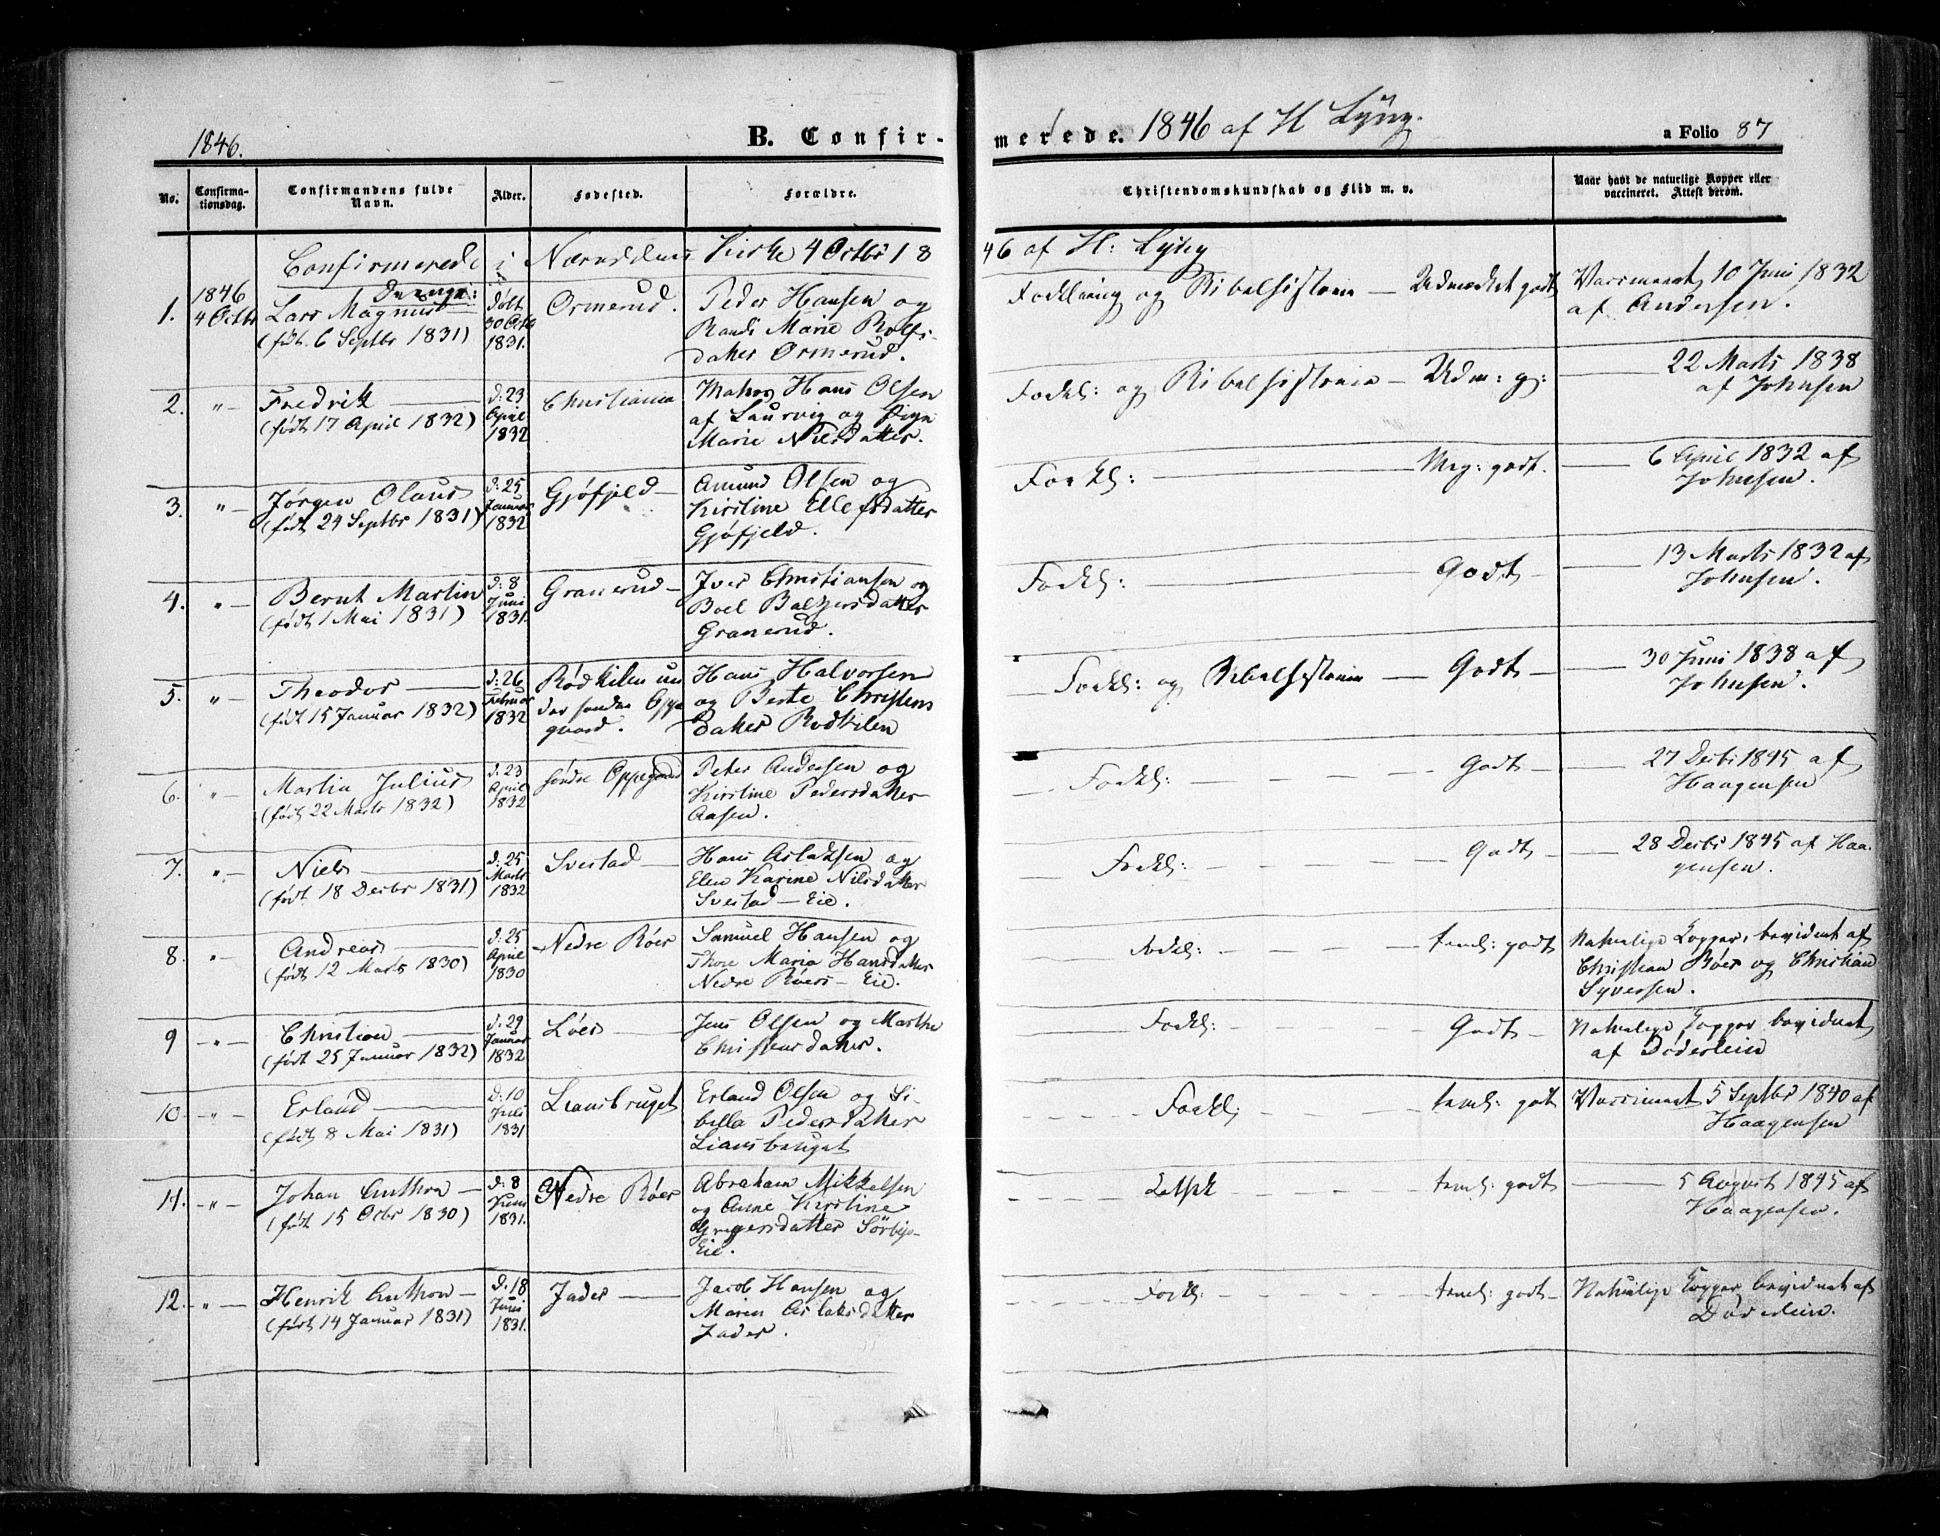 1846.
B. Confir-
merede. 1846 af H Lyng.
a Folio 87
No.
Confirma-
tionsdag.
Confirmandens fulde
Navn.
Alder.
Fødested.
Forældre.
Christendomskundskab og Flid m. v.
Naar havt de naturlige Kopper eller
vaccineret. Attest derom.
Confirmerede i Kirke 4 Octbr 18
46 af H: Lyng
Drenge:
1. 1846
4 Octbr
Lars Magnus
(føb. 6 Septbr 1831)
Døbt
30 Octb
1831.
Ormerud.
Peder Hansen og
Randi Marie Rolfs
datter Ormerud.
Forklaring og Bibelhistorie — Udmærket godt
Vaccineret 10 Juni 1832
af Andersen.
2. "— Fredrik
(født 17 April 1832)
d: 23
April
1832
Christiania
Hans Olsen
af Laurvig og
Marie Nilsdatter.
Forkl: og Bibelhistorie — Udm: g:
— 22 Marts 1838
af Johnsen
3. "— Jørgen Olaus
(født 24 Septbr 1831)
d: 25
Januar
1832
Gjøfjeld —
Amund Olsen og
Kirstine Ellefsdatter
Gjøfjeld.
Forkl: — Meg: godt.
— 6 April 1832 af
Johnsen.
4. "— Bernt Martin
(født 1 Mai 1831)
d: 8
Juni
1831.
Granerud —
Iver Christiansen og
Boel Baltzersdatter
Granerud.
Forkl: — Godt —
13 Marts 1832 af
Johnsen.
5. "— Theodor —
(født 15 Januar 1832)
d: 26
Februar
1832
Rødkilen un
der søndre Oppe
gaard.
Hans Halvorsen
og Berte Christens
datter Rødkilen
— Forkl: og Bibelhistorie — Godt —
— 30 Juni 1838 af
Johnsen.
6. "— Martin Julius
(født 22 Marts 1832)
d: 23
April
1832
søndre Oppegaard
Peter Andersen og
Kirstine Pedersdatter
Aasen.
— Forkl: — Godt —
— 27 Decbr 1845 af
Haagensen
7. "— Niels
(født 18 Decbr 1831)
d: 25
Marts
1832
Svestad —
Hans Aslaksen og
Elen Karine Nilsdatter
Svestad — Eie.
Forkl: — Godt —
— 28 Decbr 1845 af Haa
gensen.
8. "— Andreas
(født 12 Marts 1830)
d: 25
April
1830
Nedre Røer
Samuel Hansen og
Thore Maria Hansdatter
Nedre Røers — Eie.
Forkl: — teml: godt
Naturlige Kopper, bevidnet af
Christian Røer og Christian
Syversen.
9 "— Christian —
(født 25 Januar 1832)
d: 29
Januar
1832
Løes —
Jens Olsen og Marthe
Christensdatter.
Forkl: — Godt —
Naturlige Kopper, bevidnet
af Døderlein
10 "— Erland —
(født 8 Mai 1831)
D: 10
Juli
1831
Liansbruget
Erland Olsen og Si
bella Pedersdatter
Liansbruget
Forkl: — teml: godt
Vaccineret 5 Septbr 1840 af
Haagensen
11. "— Johan Anthon —
(født 15 Octbr 1830)
d: 8
1831.
Nedre Røer
Abraham Mikkelsen
og Anne Kirstine
Gregersdatter Sørbye-
Eie.
— teml: godt
— 5 August 1845 af
Haagensen.
12. "— Henrik Anthon —
(født 14 Januar 1831)
d: 18
Juni
1831.
Jader —
Jacob Hansen og
Maren Aslaksdatter
Jader.
Forkl: — teml: godt —
Naturlige Kopper, bevidnet af
Døderlein.